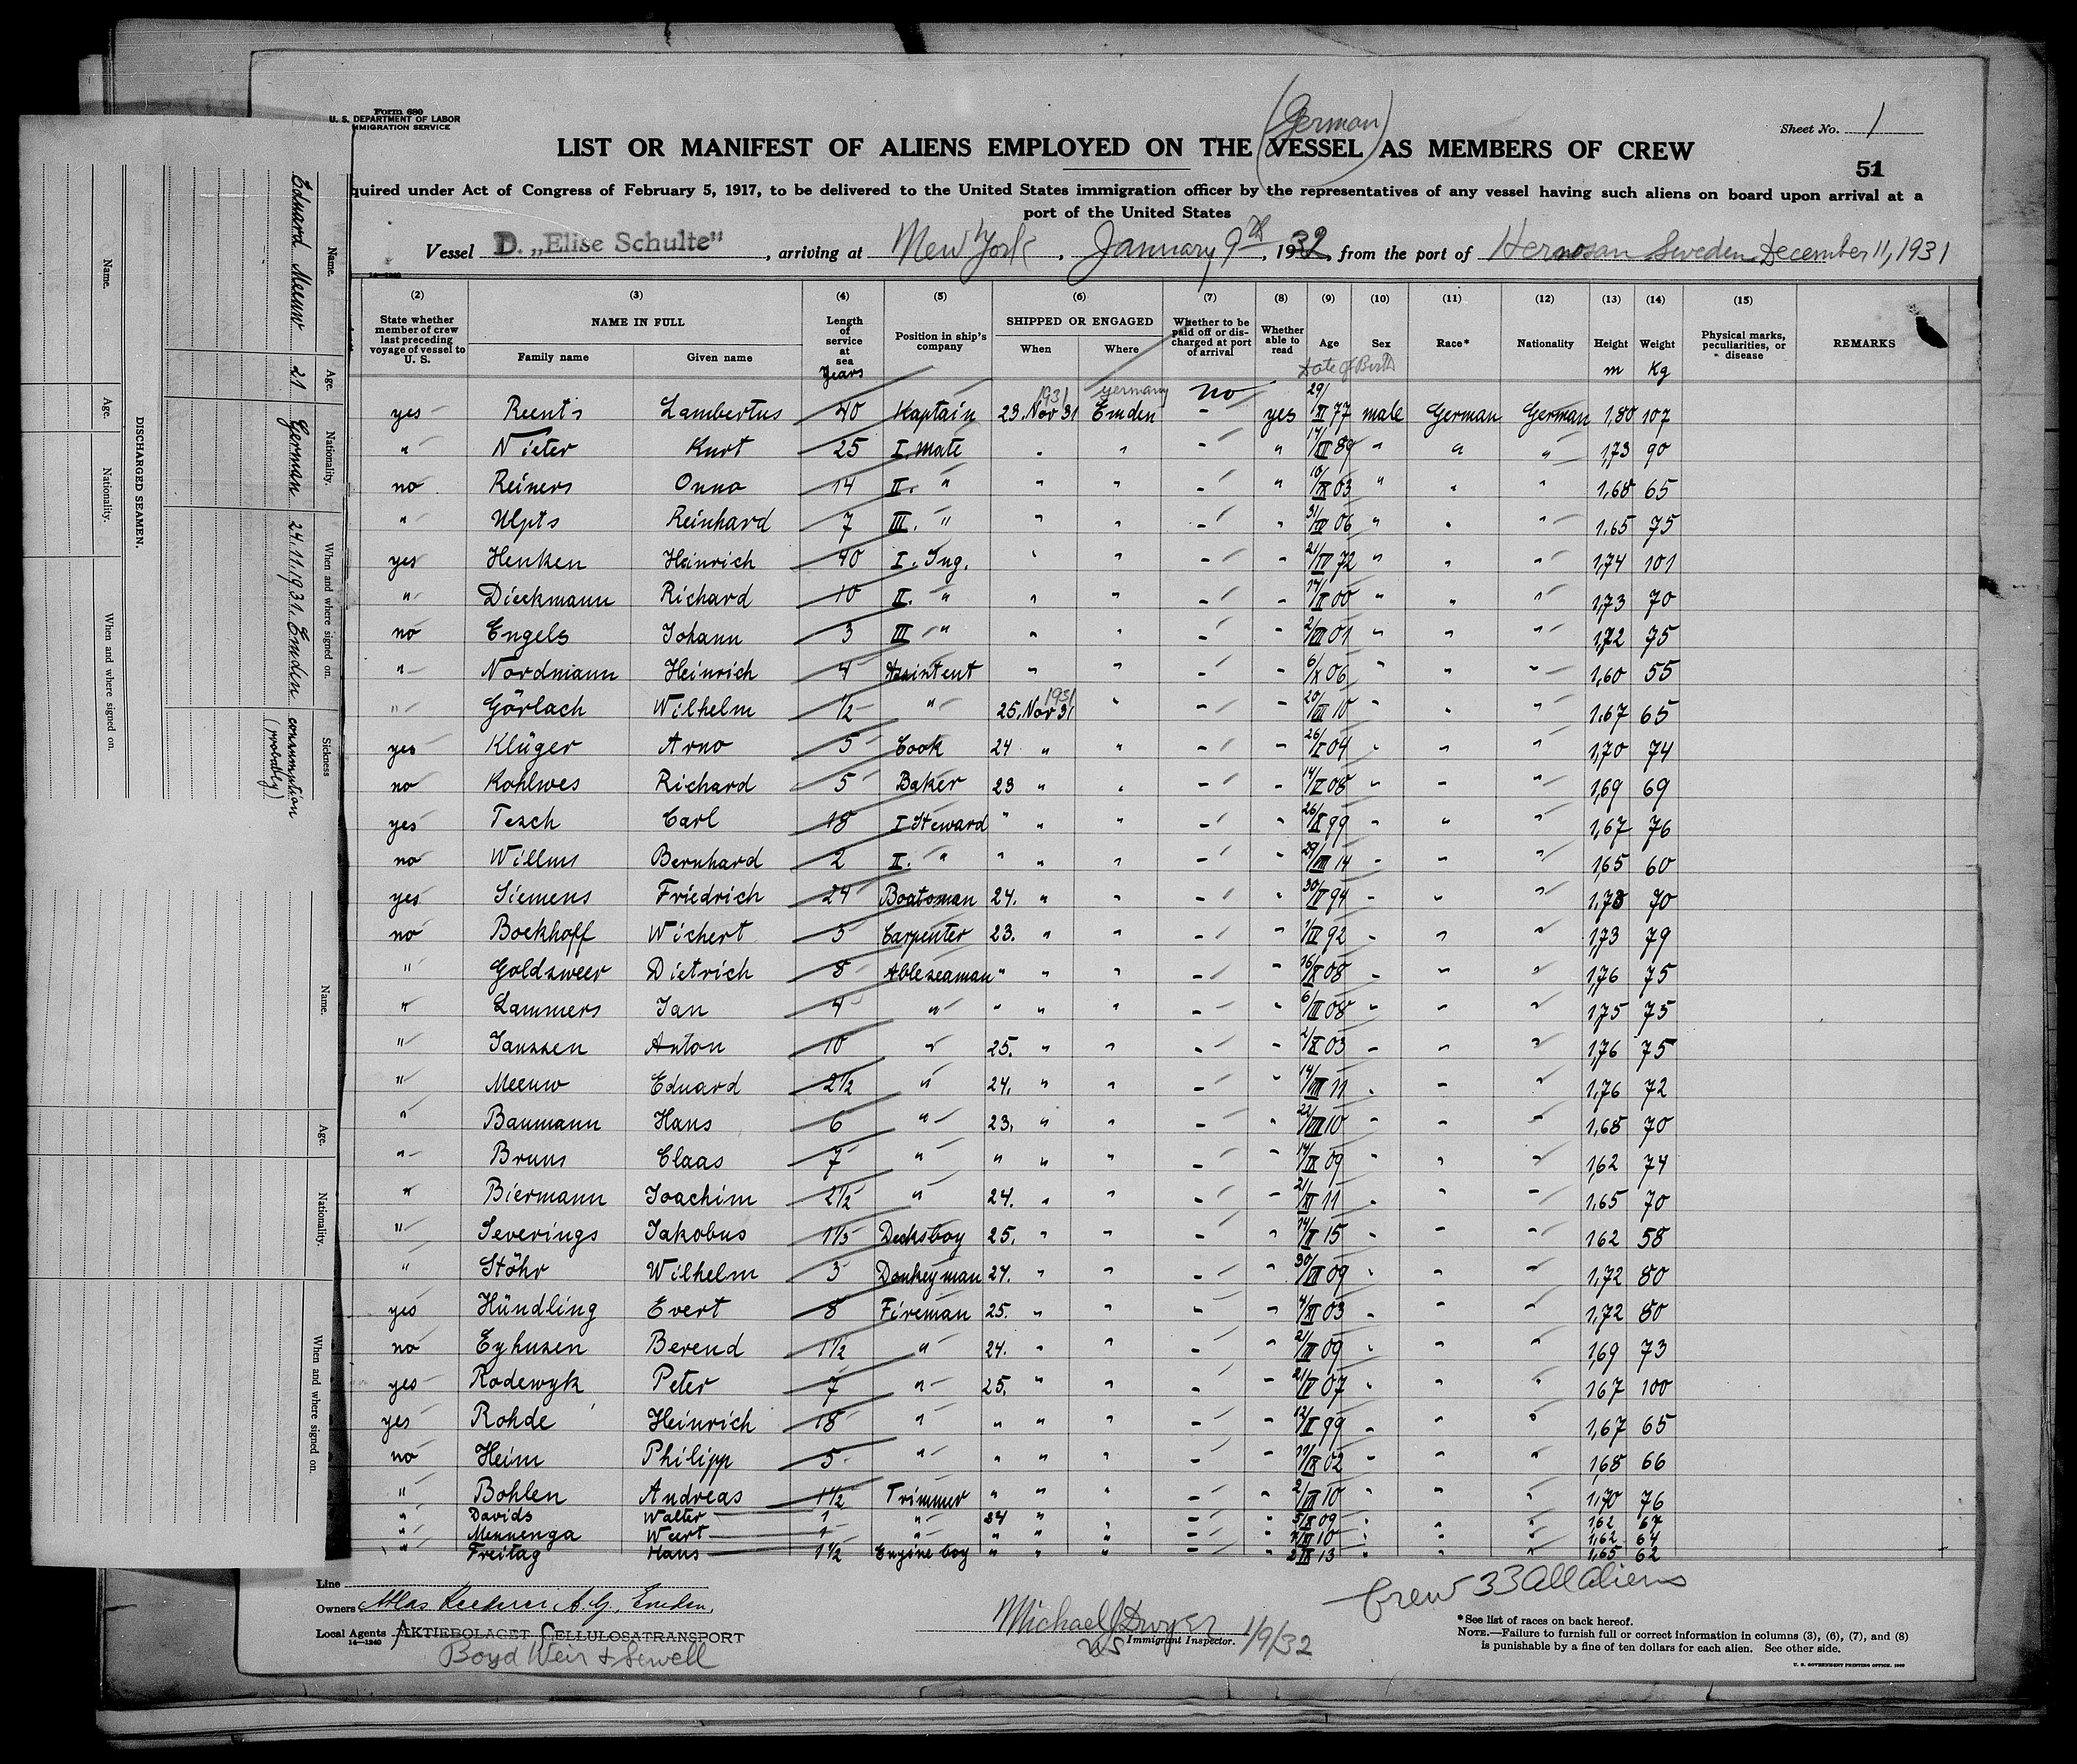 Form 680
U. S. DEPARTMENT OF LABOR
IMMIGRATION SERVICE
Sheet No. 1
(German)
LIST OR MANIFEST OF ALIENS EMPLOYED ON THE VESSEL AS MEMBERS OF CREW
51
quired under Act of Congress of February 5, 1917, to be delivered to the United States immigration officer by the representatives of any vessel having such aliens on board upon arrival at a
port of the United States
Vessel D. „Elise Schulte", arriving at New York, January 9th, 1932, from the port of Hernosan Sweden December 11, 1931
14—1240
(2) (3) (4) (5) (6) (7) (8) (9) (10) (11) (12) (13) (14) (15)
State whether member of crew last preceding voyage of vessel to U. S. NAME IN FULL Family name Given name Length of service at sea Years Position in ship's company SHIPPED OR ENGAGED When Where Whether to be paid off or discharged at port of arrival Whether able to read Age Date of Birth Sex Race* Nationality Height m Weight Kg Physical marks, peculiarities, or disease REMARKS
1931 Germany no
yes Reents Lambertus 40 Kaptain 23. Nov 31 Emden - yes 29/XI 77 male German German 1,80 107
" Nieter Kurt 25 I. mate " " - " 17/XII 89 " " " 1,73 90
no Reiners Onno 14 II. " " " - " 10/IX 03 " " " 1,68 65
" Ulpts Reinhard 7 III. " " " - " 06 " " " 1.65 75
yes Henken Heinrich 40 I. Ing. " " - " 21/IV 72 " " " 1,74 101
" Dieckmann Richard 10 II. " " " - " 00 " " " 1,73 70
no Engels Johann 3 III " " " - " 2/VIII 01 " " " 1,72 75
" Nordmann Heinrich 4 Assistent " " - " 6/X 06 " " " 1,60 55
" Görlach Wilhelm 1/2 " 25. Nov 31 1931 " - " 20/VII 10 " " " 1.67 65
yes Klüger Arno 5 Cook 24 " " - " 26/I 04 " " " 1,70 74
no Kohlwes Richard 5 Baker 23 " " - " 14/V 08 " " " 1,69 69
yes Tesch Carl 18 I Steward " " " - " 26/X 99 " " " 1,67 76
no Willms Bernhard 2 II. " " " " - " 29/VIII 14 " " " 1,65 60
yes Siemens Friedrich 24 Boatsman 24. " " - " 30/IV 94 " " " 1,73 70
no Bockhoff Wichert 5 Carpenter 23. " " - " 92 " " " 1,73 79
" Goldsweer Dietrich 8 Ableseaman " " " - " 16/X 08 " " " 1,76 75
" Lammers Jan 4 " " " " - " 6/III 08 " " " 1,75 75
" Janssen Anton 10 " 25. " " - " 2/X 03 " " " 1,76 75
" Meeuw Eduard 2 1/2 " 24. " " - " 14/VIII 11 " " " 1,76 72
" Baumann Hans 6 " 23. " " - " 22/VIII 10 " " " 1,68 70
" Bruns Claas 7 " " " " - " 14/IX 09 " " " 1,62 74
" Biermann Joachim 2 1/2 " 24. " " - " 21/XI 11 " " " 1.65 70
" Severings Jakobus 1 Decksboy 25. " " - " 14/II 15 " " " 162 58
" Stöhr Wilhelm 3 Donkeyman 24. " " - " 09 " " " 1,72 80
yes Hündling Evert 8 Fireman 25. " " - " 4/XI 03 " " " 1,72 80
no Eyhusen Berend 1 1/2 " 24. " " - " 2/III 09 " " " 1,69 73
yes Rodewyk Peter 7 " 25. " " - " 21/V 07 " " " 167 100
yes Rohde Heinrich 18 " " " " - " 12/II 99 " " " 1,67 65
no Heim Philipp 5 " " " " - " 02 " " " 168 66
" Bohlen Andreas 1 1/2 Trimmer " " " - " 2/VII 10 " " " 1,70 76
" Davids Walter 1 " 24 " " - " 5/X 09 " " " 162 67
" Mennenga Weert 1 " " " " - " 10 " " " 1,62 64
" Freitag Hans 1 1/2 Engine boy " " " - " 2/IX 13 " " " 1,65 62
Crew 33 all aliens
Line
Owners Atlas Reederei A.G., Emden,
Local Agents AKTIEBOLAGET CELLULOSATRANSPORT
14—1240
Boyd Weir & Sewell
Michael J Dwyer
Immigrant Inspector. 1/9/32
*See list of races on back hereof.
NOTE.—Failure to furnish full or correct information in columns (3), (6), (7), and (8)
is punishable by a fine of ten dollars for each alien. See other side.
U. S. GOVERNMENT PRINTING OFFICE
Name. Age. Nationality. When and where signed on. Sickness
Eduard Meeuw 21 German 24.11.1931. Emden consumption
(probably)
DISCHARGED SEAMEN.
Name. Age. Nationality. When and where signed on.
Name. Age. Nationality. When and where signed on.